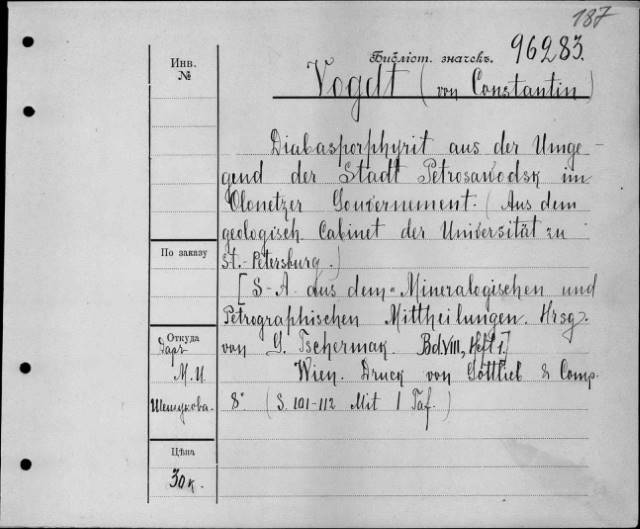 187
Инв.
№
Библіот. значекъ. 96283.
Vogdt (von Constantin)
Diabasporphyrit aus der Umge-
gend der Stadt Petrosawodsk im
Olonetzer Gouvernement. (Aus dem
geologisch. Cabinet der Universität zu
St.-Petersburg.)
[S-A. aus dem "Mineralogischen und
Petrographischen Mittheilungen. Hrsg.
von G. Tschermak. Bd. VIII, Heft 1.]
Wien. Druck von Gottlieb & Comp.
8° (S. 101-112 Mit 1 Taf.)
По заказу
Откуда
Даръ
М. И.
Шешукова.
Цѣна
30 к.